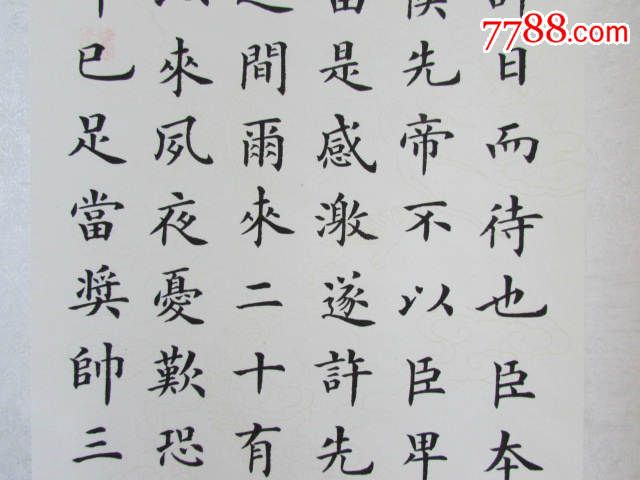 7788.com
日而待也臣本
侯先帝不以臣卑
是感激遂許先
之間爾來二十有
來夙夜憂歎恐
巳足當奬帥三